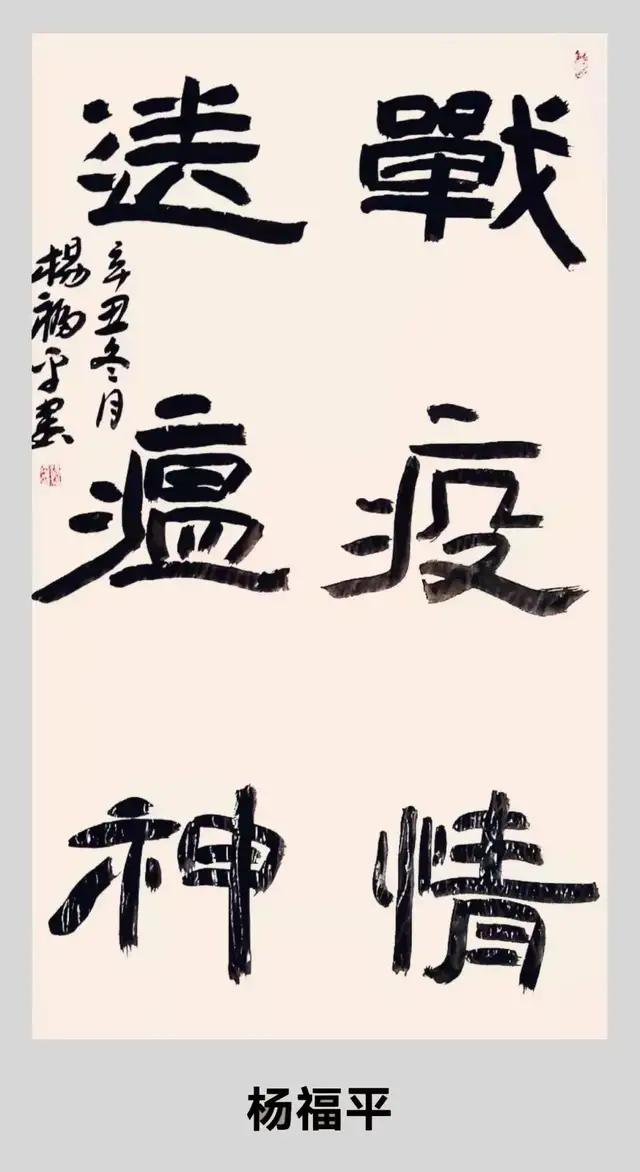 戰疫情
送瘟神
辛丑冬月
楊福平書
杨福平